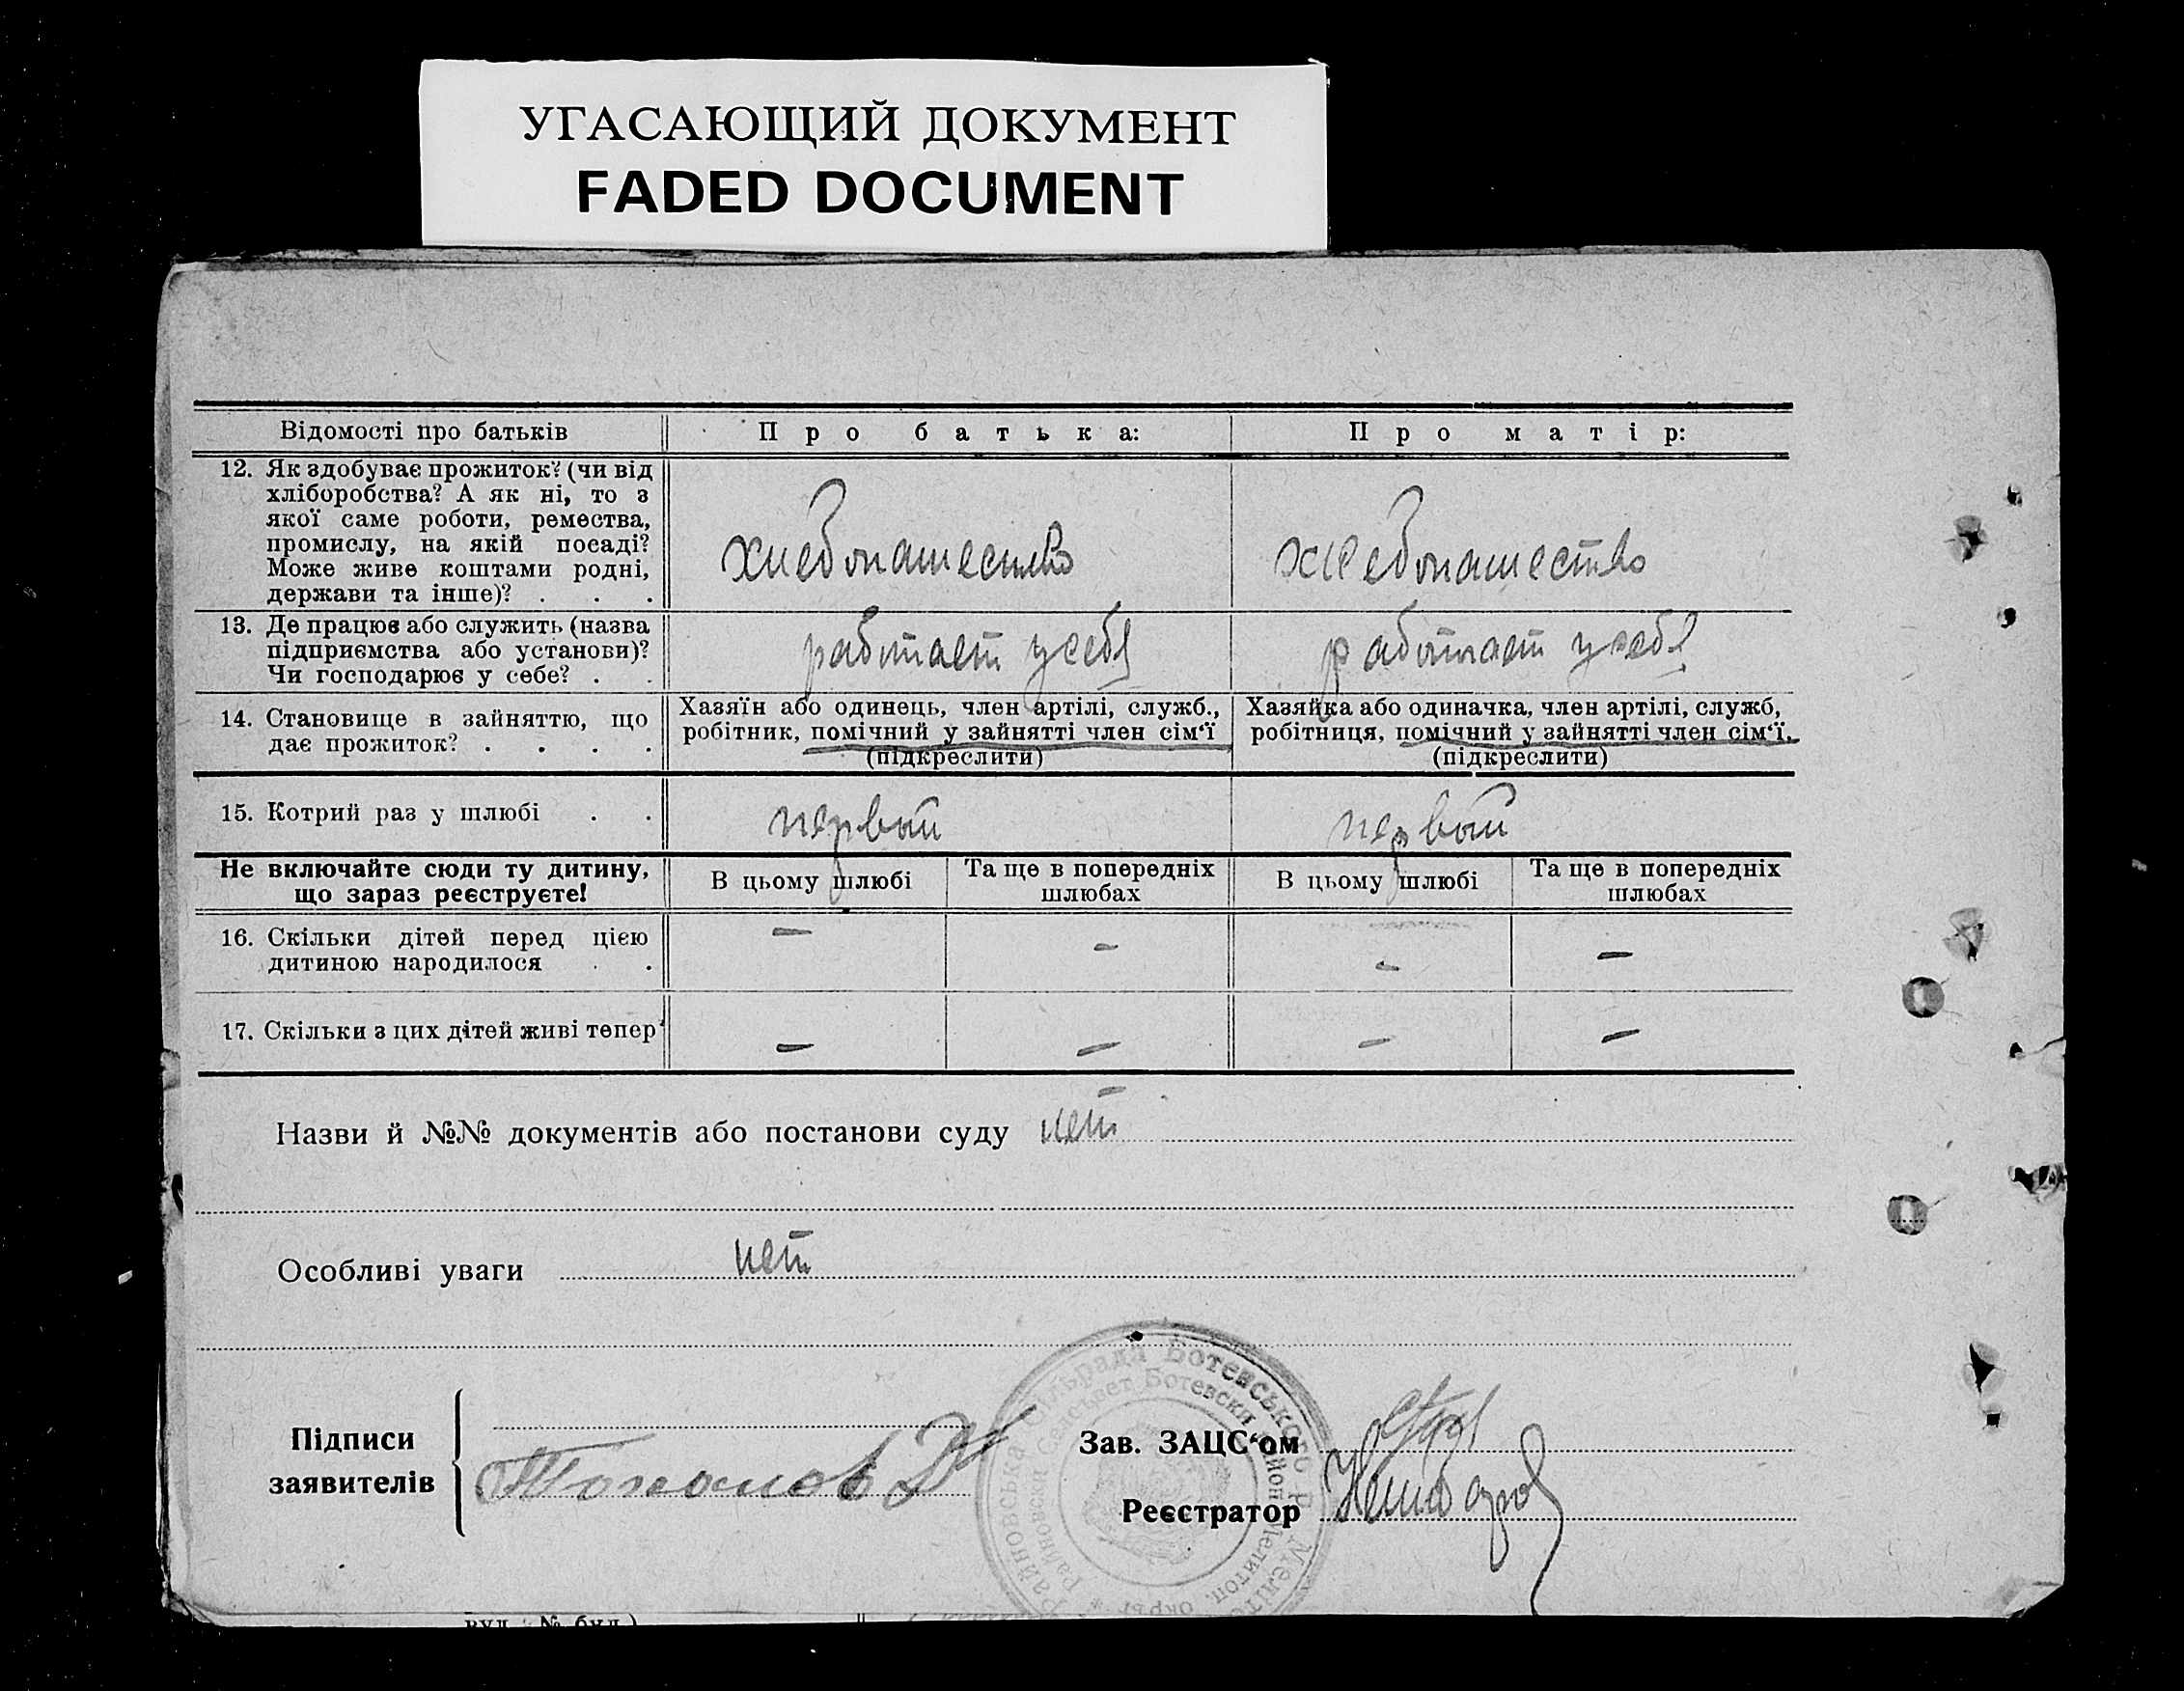 УГАСАЮЩИЙ ДОКУМЕНТ
FADED DOCUMENT
Відомості про батьків
Про батька:
Про матір:
12. Як здобуває прожиток? (чи від
хліборобства? А як ні, то з
якої саме роботи, ремества,
промислу, на якій посаді?
Може живе коштами родні,
держави та інше)? . . .
хлебопашество
хлебопашество
13. Де працює або служить (назва
підприємства або установи)?
Чи господарює у себе? . .
работает у себя
работает у себя
14. Становище в зайняттю, що
дає прожиток? . . . .
Хазяїн або одинець, член артілі, служб.,
робітник, помічний у зайнятті член сім‘ї
(підкреслити)
Хазяйка або одиначка, член артілі, служб,
робітниця, помічний у зайнятті член сім‘ї.
(підкреслити)
15. Котрий раз у шлюбі . .
первый
первый
Не включайте сюди ту дитину,
що зараз реєструєте!
В цьому шлюбі
Та ще в попередніх
шлюбах
В цьому шлюбі
Та ще в попередніх
шлюбах
16. Скільки дітей перед цією
дитиною народилося . .
– – – –
17. Скільки з цих дітей живі тепер
– – – –
Назви й №№ документів або постанови суду нет
Особливі уваги нет
Підписи
заявителів
Зав. ЗАЦС‘ом
Реєстратор
сільрада Ботевського р.
Сельсовет Ботевски район
Мелитоп. окру
вул. № буд.)